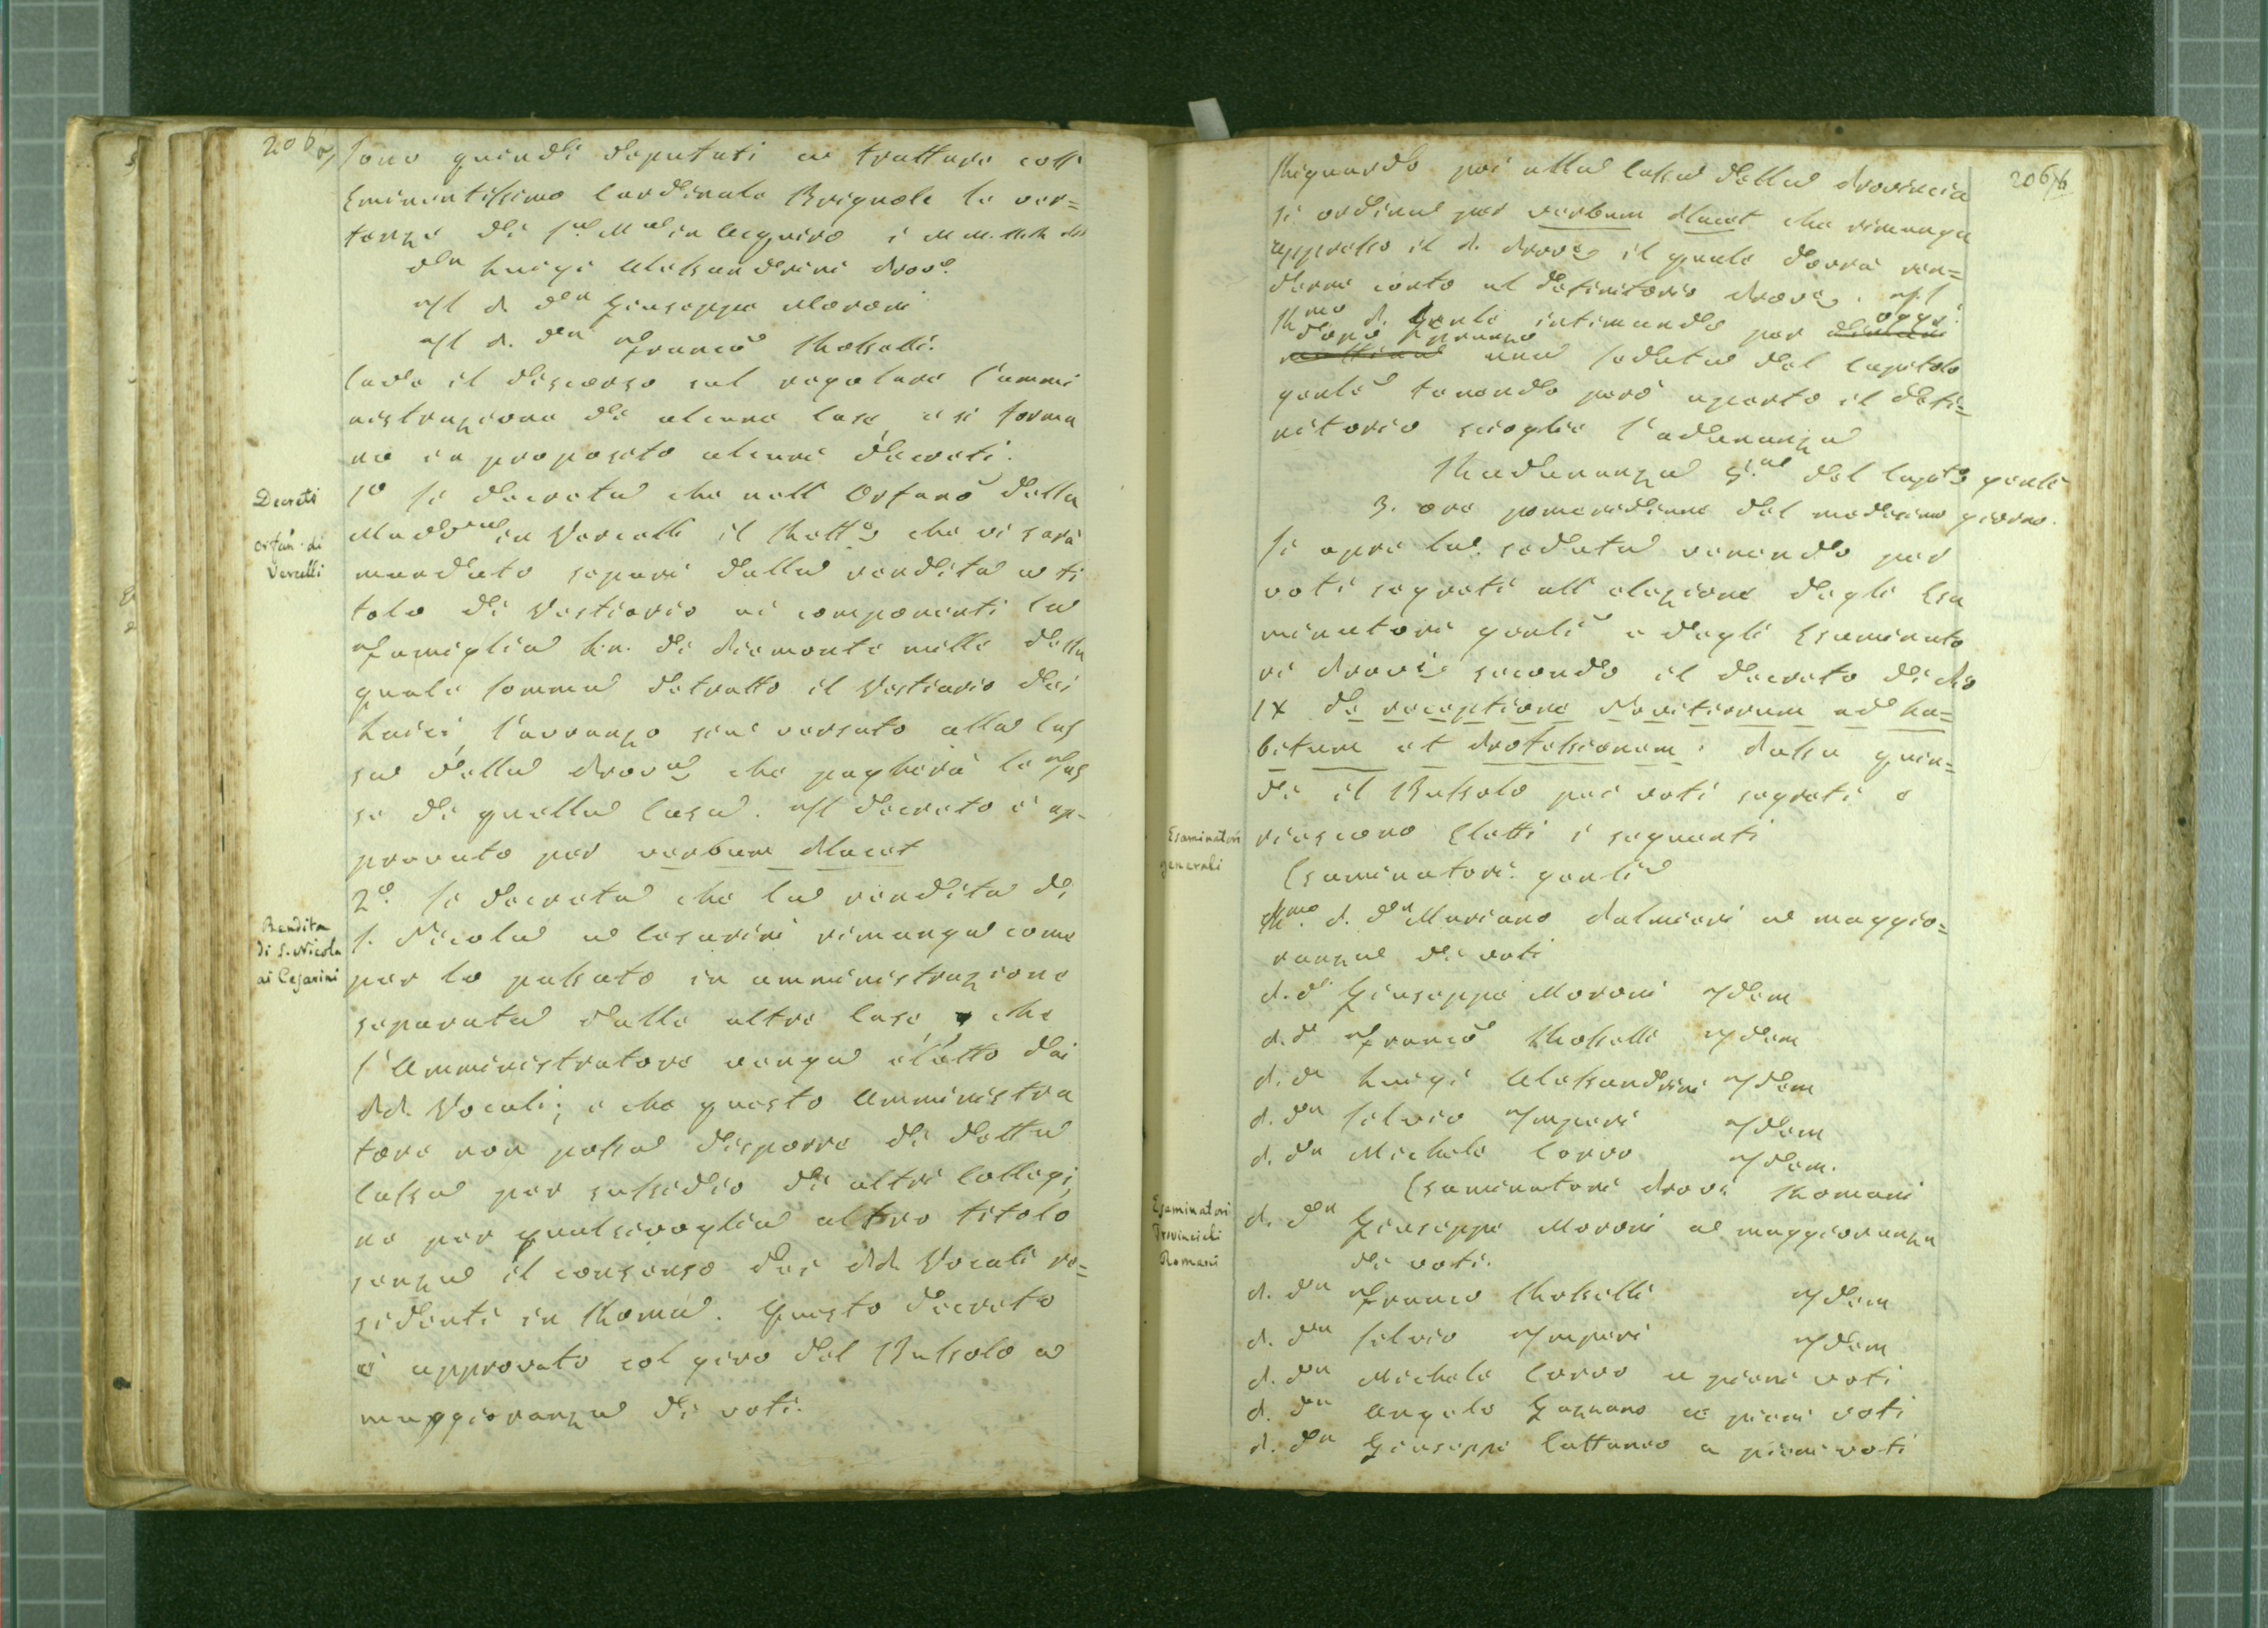 206/a
Sono quindi deputati a trattare coll'
Eminentissimo Cardinale Brignole la ver=
tenza di S.a M.a in Aquiro i MM. RR. PP.
D.n Luigi Alessandrini Prov.e
Il P. D.n Giuseppe Moroni
Il P. D.n Franco Rosselli.
Cade il discorso sul regolare l'ammi
nistrazione di alcune Case, e si forma
no in proposito alcuni decreti.
Decreti
Orfan. di
Vercelli
1o Si decreta che nell'Orfano della
Madd.na in Vercelli il Rett.e che vi sarà
mandato separi dalla rendita a ti
tolo di Vestiario ai componenti la
Famiglia Ln. di Piemonte mille della
quale somma detratto il Vestiario dei
Laici, l'avvanzo sia versato alla Cas
sa della Prov.a che pagherà le Tas
se di quella Casa. Il decreto è ap=
provato per verbum Placet
Rendita
di S. Nicola
ai Cesarini
2o Si decreta che la rendita di
S. Nicola a Cesarini rimanga come
per lo passato in amministrazione
separata dalle altre Case, che
l'Amministratore venga eletto dai
PP. Vocali; e che questo Amministra
tore non possa disporre di detta
Cassa per sussidio di altri Collegi,
ne per qualsivoglia altro titolo
senza il consenso dei PP. Vocali re=
sidenti in Roma. Questo decreto
è approvato col giro del Bussolo a
maggioranza di voti.
206/b
Riguardo poi alla Cassa della Provincia
si ordina per verbum Placet che rimanga
appresso il P. Prov.e il quale dovrà ren=
derne conto al Definitorio Prov.e. Il
R.mo P. Genle intimando per dimani oggi
mattina dopo pranzo una seduta del Capitolo
genle tenendo però aperto il Defi=
nitorio scioglie l'adunanza
Radunanza 5.a del Capito genle
3. ore pomeridiane del medesimo giorno.
Si apre la seduta venendo per
voti segreti all'elezione degli Esa
minatori genli e degli Esaminato
ri Provi secondo il decreto di Pio
IX de receptione Novitiorum ad ha=
bitum et Professionem. Passa quin=
di il Bussolo pei voti segreti e
riescono Eletti i seguenti
Esaminatori
generali
Esaminatori genli
R.mo P. D.n Mariano Palmieri a maggio=
ranza di voti
P. D. Giuseppe Moroni Idem
P. D. Franco Rosselli Idem
P. D.n Luigi Alessandrini Idem
P. D.n Silvio Imperi Idem
P. D.n Michele Corvo Idem.
Esaminatori
Provinciali
Romani
Esaminatori Provi Romani
P. D.n Giuseppe Moroni a maggioranza
di voti.
P. D.n Franco Rosselli Idem
P. D.n Silvio Imperi Idem
P. D.n Michele Corvo a pieni voti
P. D.n Angelo Gazzano a pieni voti
P. D.n Giuseppe Cattaneo a pieni voti